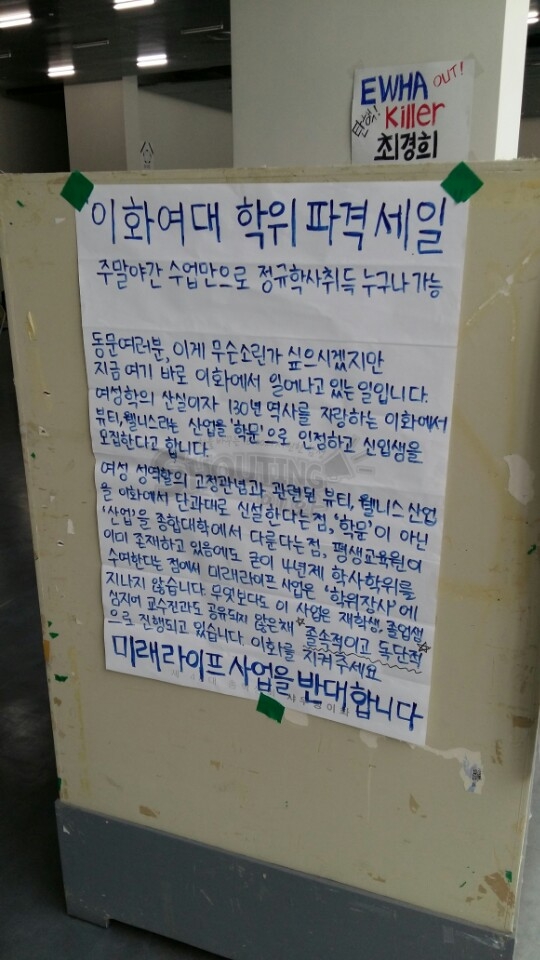 EWHA OUT!
탄핵! Killer
최경희
이화여대 학위 파격 세일
주말야간 수업만으로 정규학사취득 누구나 가능
동문여러분, 이게 무슨소린가 싶으시겠지만
지금 여기 바로 이화에서 일어나고 있는 일입니다.
여성학의 산실이자 130년 역사를 자랑하는 이화에서
뷰티, 웰니스라는 산업을 '학문'으로 인정하고 신입생을
모집한다고 합니다.
여성 성역할의 고정관념과 관련된 뷰티, 웰니스 산업
을 이화에서 단과대로 신설한다는 점, '학문'이 아닌
'산업'을 종합대학에서 다룬다는 점, 평생교육원이
이미 존재하고 있음에도 굳이 4년제 학사학위를
수여한다는 점에서 미래라이프 사업은 '학위장사'에
지나지 않습니다. 무엇보다도 이 사업은 재학생, 졸업생
심지어 교수진과도 공유되지 않은채 ☆졸속적이고 독단적☆
으로 진행되고 있습니다. 이화를 지켜 주세요
미래라이프 사업을 반대합니다